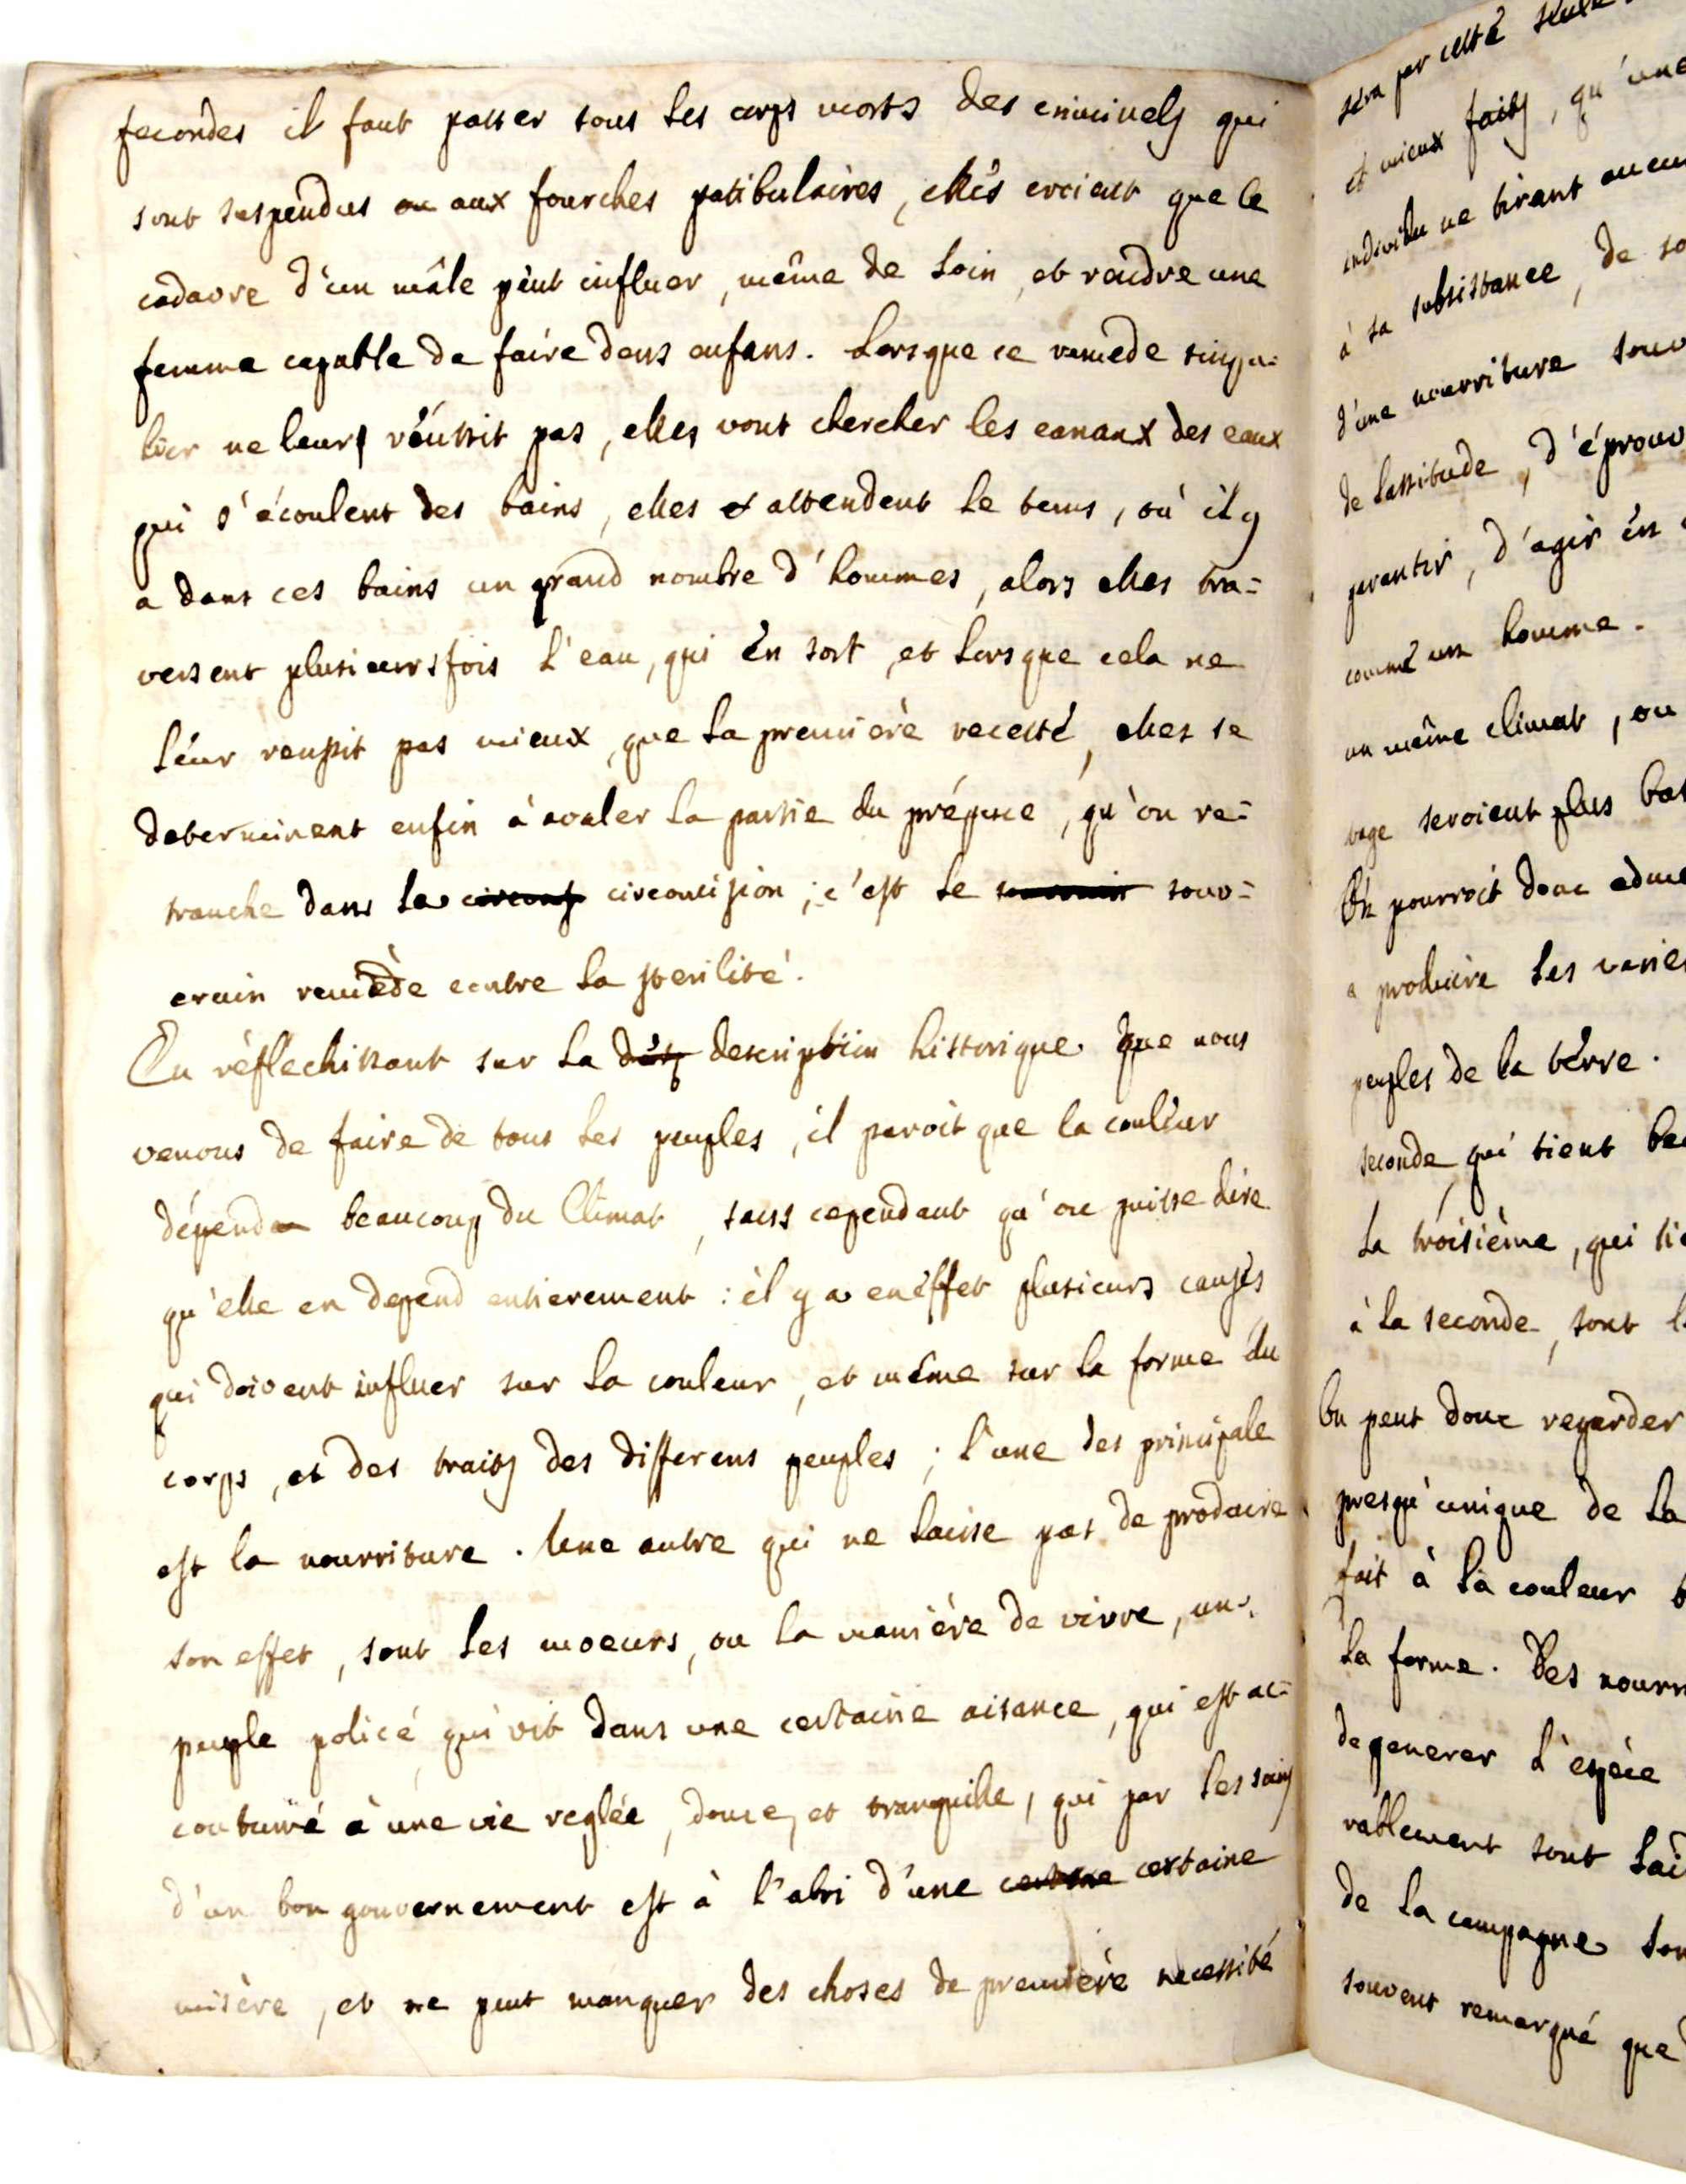 fecondes il faut passer sous les corps morts des criminels qui
sont suspendus ou aux fourches patibulaires, elles croient que le
cadavre d'un mâle peut influer, même de loin, et rendre une
femme capable de faire dens enfans. Lorsque ce remede singu=
lier ne leurs réussit pas, elles vont chercher les canaux des eaux
qui s'écoulent des bains, elles & attendent le tems, où il y
a dans ces bains un grand nombre d'hommes, alors elles tra=
versent plusieurs fois l'eau, qui en sort, et lorsque cela ne
leur reussit pas mieux, que la première recette, elles se
determinent enfin à avaler la partie du prépuce, qu'on re=
tranche dans la circons circoncision ; c'est le souverain souv=
erain remède contre la sterilité.
En réflechissant sur la des description historique que nous
venons de faire de tous les peuples, il paroit que la couleur
dépend beaucoup du Climat, sans cependant qu'on puisse dire
qu'elle en depend entierement : il y a en effet plusieurs causes
qui doivent influer sur la couleur, et même sur la forme du
corps, et des traits des differens peuples ; l'une des principale
est la nourriture. Une autre qui ne laisse pas de produire
son effet, sont les moeurs, ou la manière de vivre, un
peuple policé, qui vit dans une certaine aisance, qui est ac=
coutumé à une vie reglée, douce, et tranquille, qui par les soins
d'un bon gouvernement est à l'abri d'une certaine certaine
misère, et ne peut manquer des choses de première necessité
sera par cette seule
et mieux faits, qu'une
individu ne tirant aucun
à sa subsistance, de so
d'une nourriture souv
de lassitude, d'éprouv
garantir, d'agir en
comme un homme.
un même climat, ou
vage seroient plus bas
On pourroit donc adme
a produire les varie
peuples de la terre.
seconde, qui tient be
la troisième, qui tie
à la seconde, sont l
On peut donc regarder
presqu'unique de la
fait à la couleur b
la forme. Des nourri
degenerer l'espèce
rablement sont lai
de la campagne son
souvent remarqué que